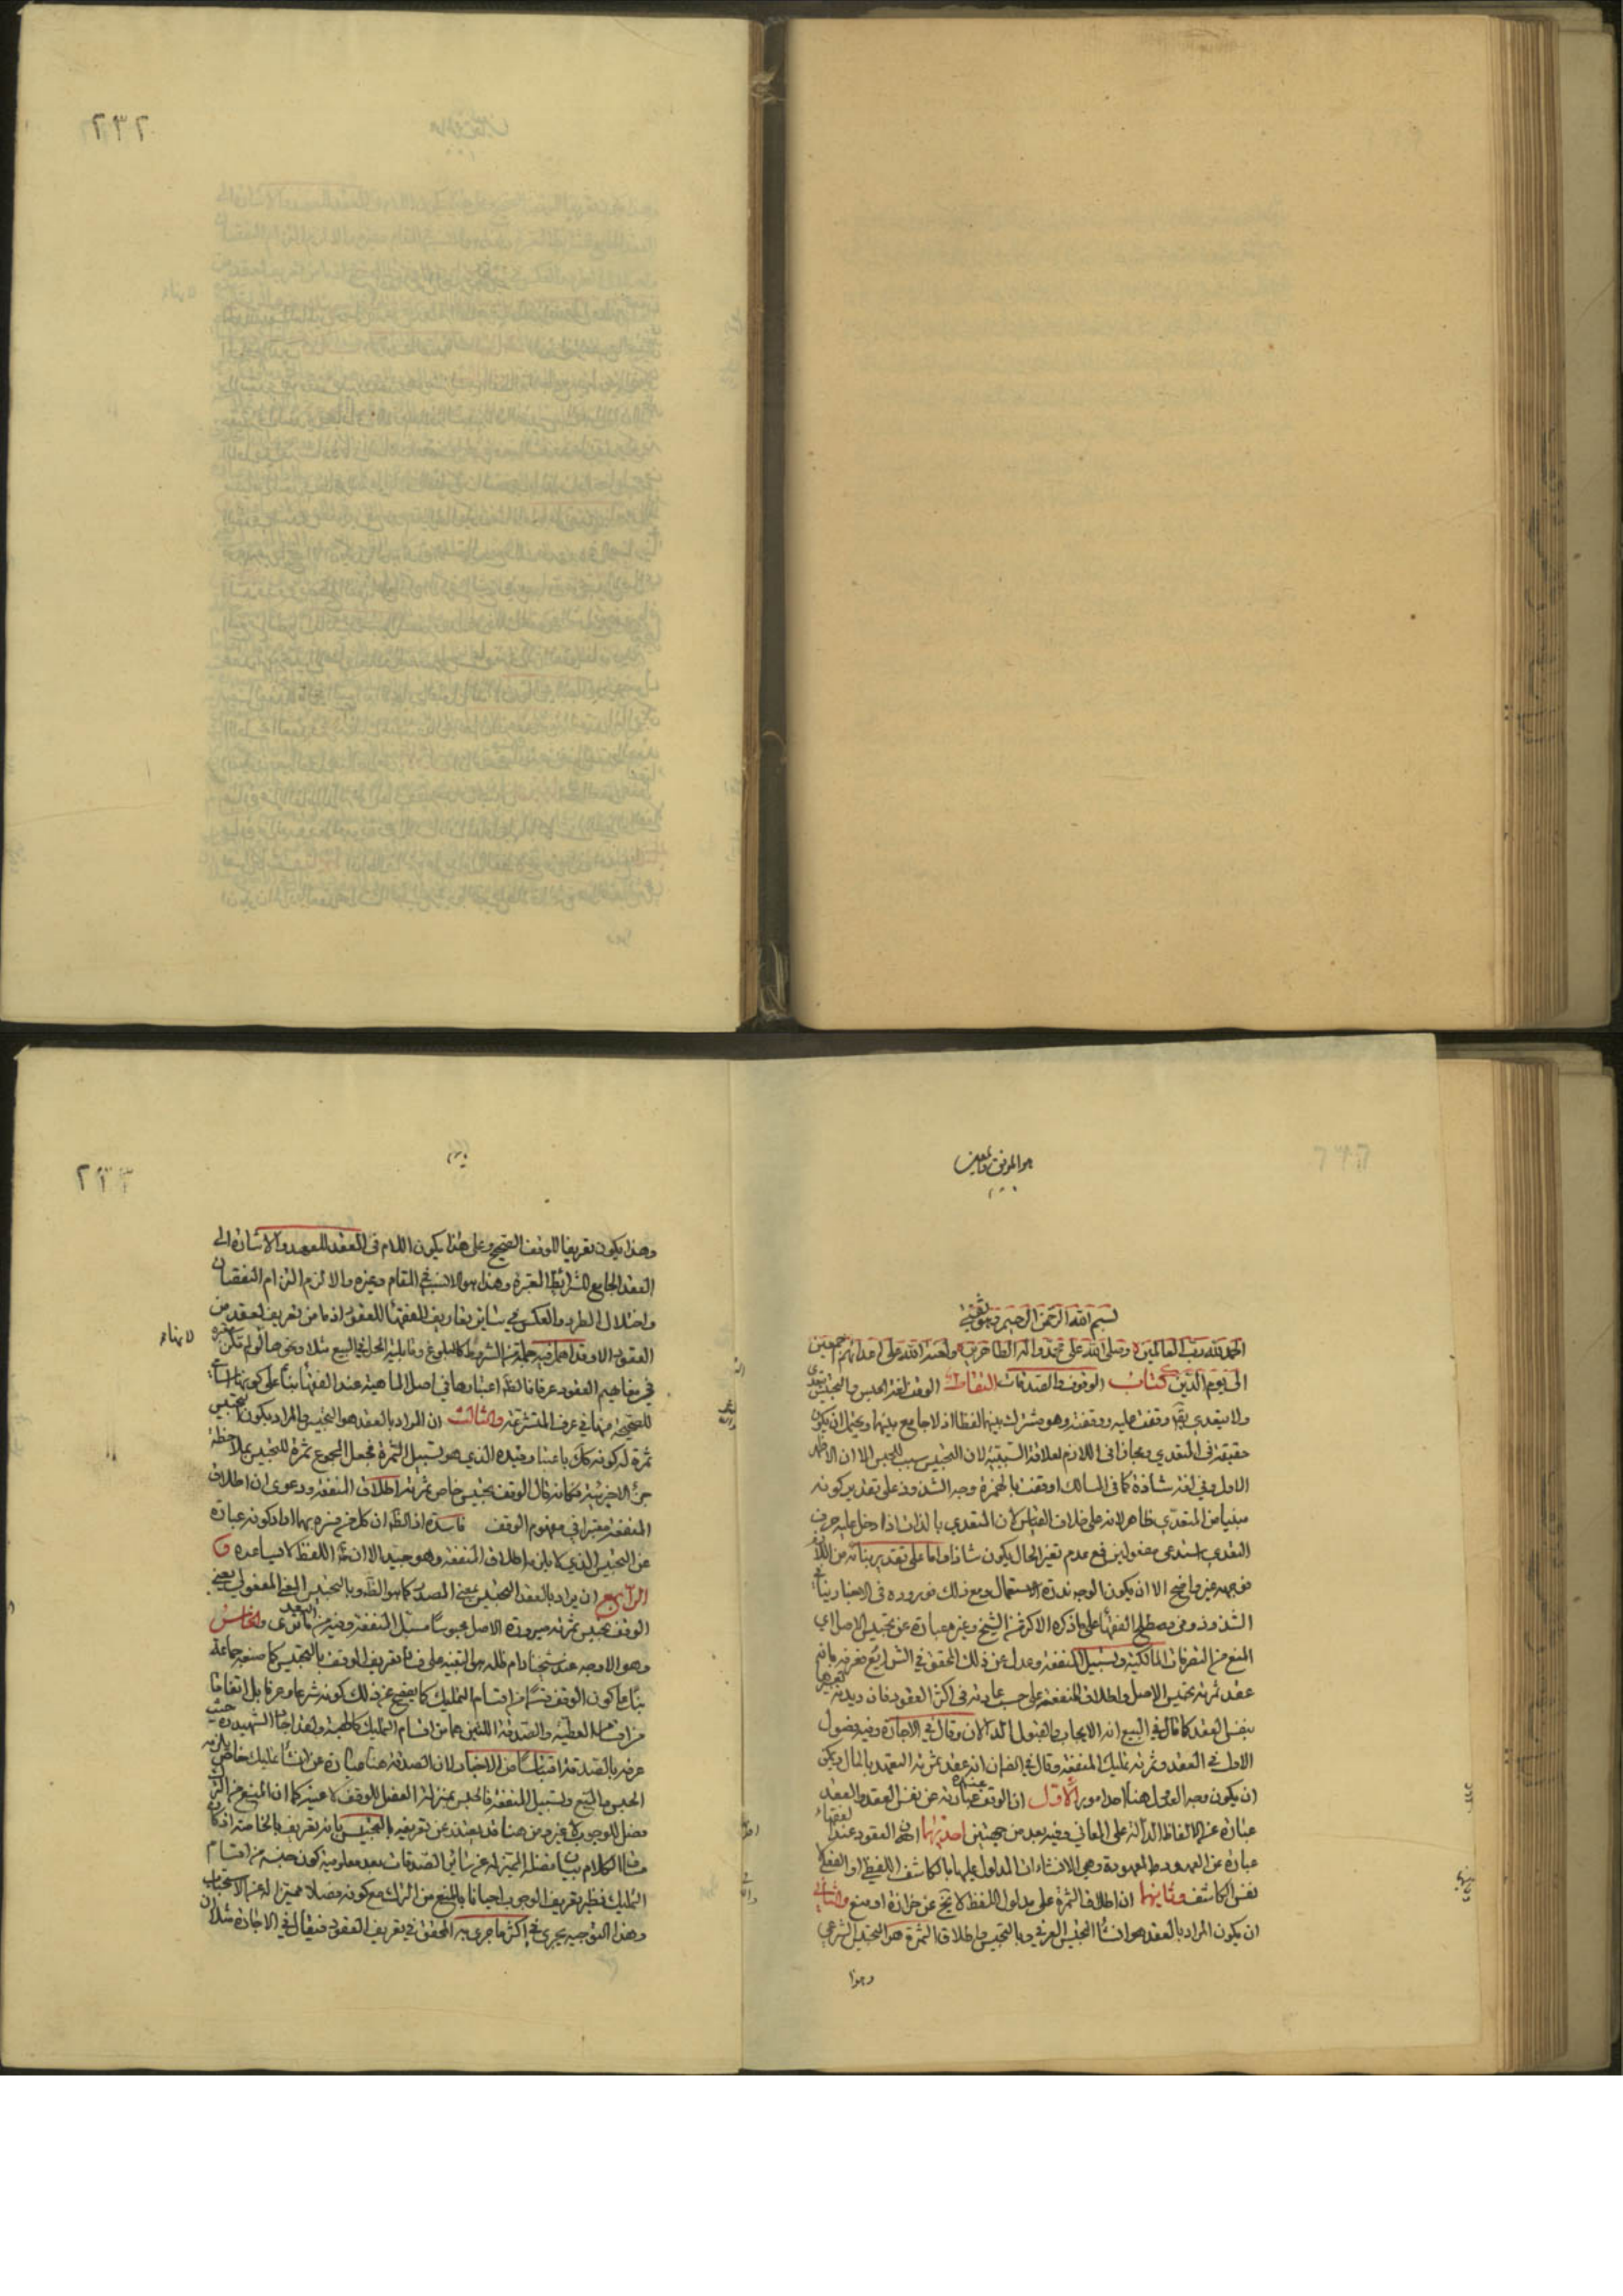 ٢٣٢
هو الموفق والمعين
بسم الله الرحمن الرحيم وبه ثقتي
الحمد لله رب العالمين وصلى الله على محمد واله الطاهرين ولعنة الله على اعدائهم اجمعين
الى يوم الدين كتاب الوقوف والصدقات الوقف لغة الحبس والتحبيس يتعدى
ولا يتعدى يقال وقفت عليه ووقفته وهو مشترك بينهما لفظا اذ لا جامع بينهما ويحتمل ان يكون
حقيقة في المتعدي ومجازا في اللازم لعلاقة السببية لان التحبيس سبب للحبس الا ان الاظهر
الاول وفي لغة شاذة كما في المسالك اوقفت بالهمزة وجه الشذوذ على تقدير كونه
مبنيا من المتعدي ظاهر لانه على خلاف القياس لان المتعدي بالذات اذا دخل عليه حرف
التعدي استدعى مفعولين فمع عدم تغير الحال يكون شاذا واما على تقدير بنائه من اللازم
فوجهه غير واضح الا ان يكون الوجه ندرة الاستعمال ومع ذلك فوروده في الاخبار ينافي
الشذوذ وفي مصطلح الفقهاء على ما ذكره الاكثر منهم الشيخ وغيره عبارة عن تحبيس الاصل اي
المنع من التصرفات المالكية وتسبيل المنفعة وعدل عن ذلك المحقق في الشرائع فعرفه بانه
عقد ثمرته تحبيس الاصل واطلاق المنفعة على حسب عادته في اكثر العقود فان ديدنه تعريفها
بنفس العقد كما قال في البيع انه الايجاب والقبول الدالان وقال في الاجارة وفيه فصول
الاول في العقد وثمرته تمليك المنفعة وقال في الضمان انه عقد ثمرته التعهد بالمال ويمكن
ان يكون وجه العدول هنا احد امور الاول ان الوقف عنده عبارة عن نفس العقد والعقد
عبارة عن الالفاظ الدالة على المعاني وفيه بعد من جهتين احديهما ان العقود عند الفقهاء
عبارة عن العهود المعهودة وهي الانشاءات المدلول عليها بالكاشف اللفظي او الفعلي لا
نفس الكاشف وثانيهما ان اطلاق الثمرة على مدلول اللفظ لا يخ عن حزازة او منع والثاني
ان يكون المراد بالعقد هو انشاء التحبيس العرفي وبالتحبيس واطلاق الثمرة هو التحبيس الشرعي
وهذا
٢٣٣
وهذا يكون تعريفا للوقف الصحيح وعلى هذا يكون اللام في العقد للعهد والاشارة الى
العقد الجامع للشرائط المعتبرة وهذا هو الانسب في المقام وغيره والا لزم التزام النقصان
واختلال الطرد والعكس في سائر تعاريف الفقهاء للعقود اذ ما من تعريف لعقد من
العقود الا وقد اهمل فيه جملة من الشروط كالبلوغ وقابلية المحل في البيع مثلا ونحوها لو لم تكن معتبرة
في مفاهيم العقود عرفا فالظ اعتبارها في اصل الماهية عند الفقهاء بناء على كونها اسام
للصحيحة منها في عرف المتشرعة والثالث ان المراد بالعقد هو التحبيس والمراد بكون التحبيس
ثمرة له كونه كك باعتبار قيده الذي هو تسبيل الثمرة فجعل المجموع ثمرة للتحبيس بملاحظة
جزئه الاخير فكانه قال الوقف تحبيس خاص ثمرته اطلاق المنفعة ودعوى ان اطلاق
المنفعة معتبر في مفهوم الوقف فاسدة اذ الظ ان كل من فسره بهما اراد كونه عبارة
عن التحبيس الذي يلزمه اطلاق المنفعة وهو جيد الا ان اللفظ لا يساعده و
الرابع ان يراد بالعقد التحبيس بمعنى المصدر كما هو الظ وبالتحبيس المعنى المفعولي يعني
الوقف تحبيس ثمرته صيرورة الاصل محبوسا مسبل المنفعة وفيه من البعد ما ترى والخامس
وهو الاوجه عند شيخنا دام ظله هو التنبيه على فساد تعريف الوقف بالتحبيس كما صنعه جماعة
بناء على كون الوقف قسما من اقسام التمليك كما يفصح عن ذلك كونه شرعا وعرفا بل اتفاقا
من اقسام العطية والصدقة اللتين هما من اقسام التمليك كالهبة ولهذا اجاد الشهيد ره حيث
عرفه بالصدقة اقتباسا من الاخبار لان الصدقة هنا عبارة عن انشاء تمليك خاص يلزمه
الحبس والمنع وتسبيل المنفعة فالحبس بمنزلة الفصل للوقف لا عينه كما ان المنع من الترك
فصل للوجوب لا غير ومن هنا قد يعتذر عن تعريفه بالتحبيس بانه تعريف بالخاصة اذ كان
مساق الكلام بيان فصله المميز له عن سائر الصدقات بعد معلومية كون جنسه من اقسام
التمليك نظير تعريف الوجوب احيانا بالمنع من الترك مع كونه فصلا مميزا له عن الاستحباب
وهذا التوجيه يجري في اكثر ما جرى به المحقق في تعريف العقود فيقال في الاجارة مثلا ان